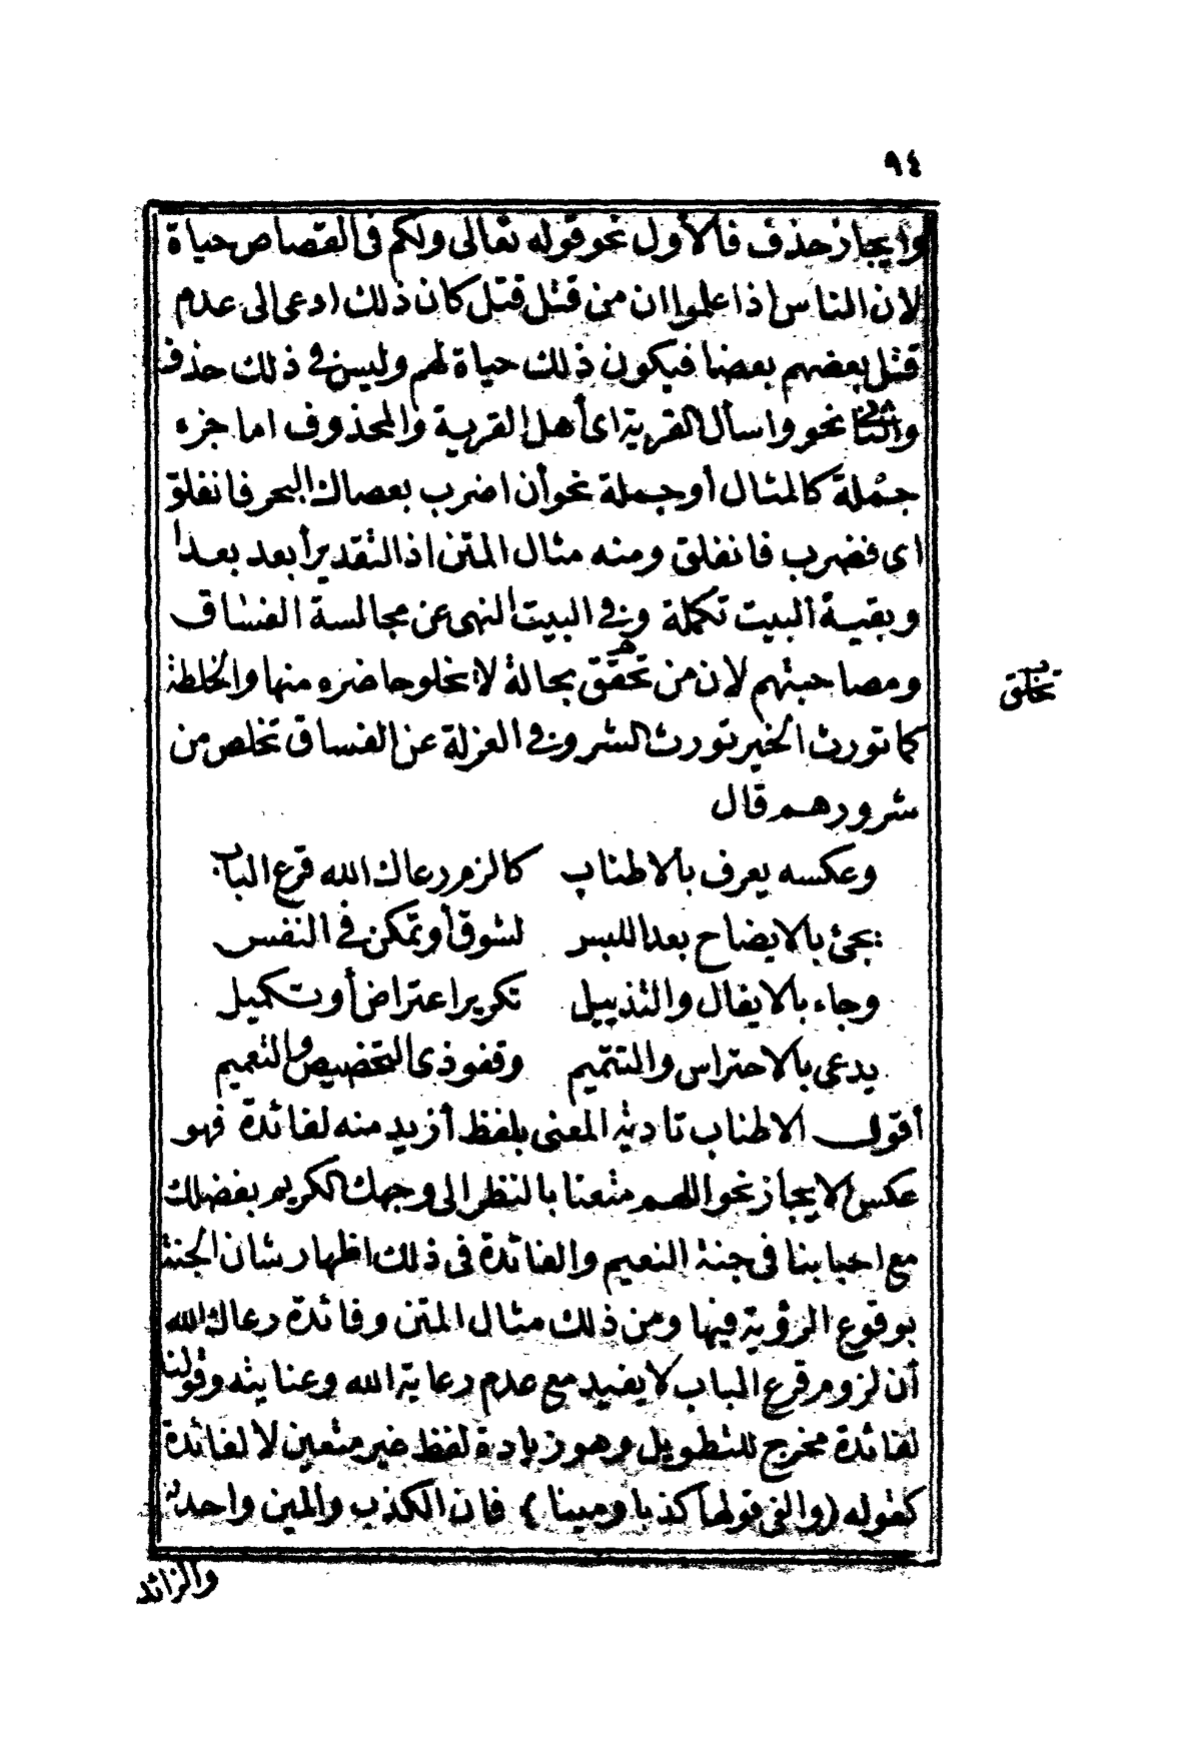 ٩٤
وايجاز حذف فالأول نحو قوله تعالى ولكم فى القصاص حياة
لان الناس اذا علموا ان من قتل قتل كان ذلك ادعى الى عدم
قتل بعضهم بعضا فيكون ذلك حياة لهم وليس فى ذلك حذف
والثانى نحو واسأل القرية اى أهل القرية والمحذوف اما جزء
جملة كالمثال أو جملة نحو أن اضرب بعصاك البحر فانفلق
اى فضرب فانفلق ومنه مثال المتن اذ التقدير أبعد بعدا
وبقية البيت تكملة وفى البيت النهى عن مجالسة الفساق
ومصاحبتهم لان من تحقق بحالة لا يخلو حاضره منها والخلطة
تخلق
كما تورث الخير تورث الشر وفى العزلة عن الفساق تخلص من
شرورهم قال
وعكسه يعرف بالاطناب كالزم رعاك الله قرع الباب
يجئ بالايضاح بعد اللبس لشوق أو تمكن فى النفس
وجاء بالايغال والتذييل تكرير اعتراض أو تكميل
يدعى بالاحتراس والتتميم وقفو ذى التخصيص والتعميم
أقول الاطناب تادية المعنى بلفظ أزيد منه لفائدة فهو
عكس الايجاز نحو اللهم متعنا بالنظر الى وجهك الكريم بفضلك
مع احبابنا فى جنة النعيم والفائدة فى ذلك اظهار شان الجنة
بوقوع الرؤية فيها ومن ذلك مثال المتن وفائدة رعاك الله
أن لزوم قرع الباب لا يفيد مع عدم رعاية الله وعنايته وقولنا
لفائدة مخرج للتطويل وهو زيادة لفظ غير متعين لا لفائدة
كقوله (والفى قولها كذبا ومينا) فان الكذب والمين واحد
والزائد